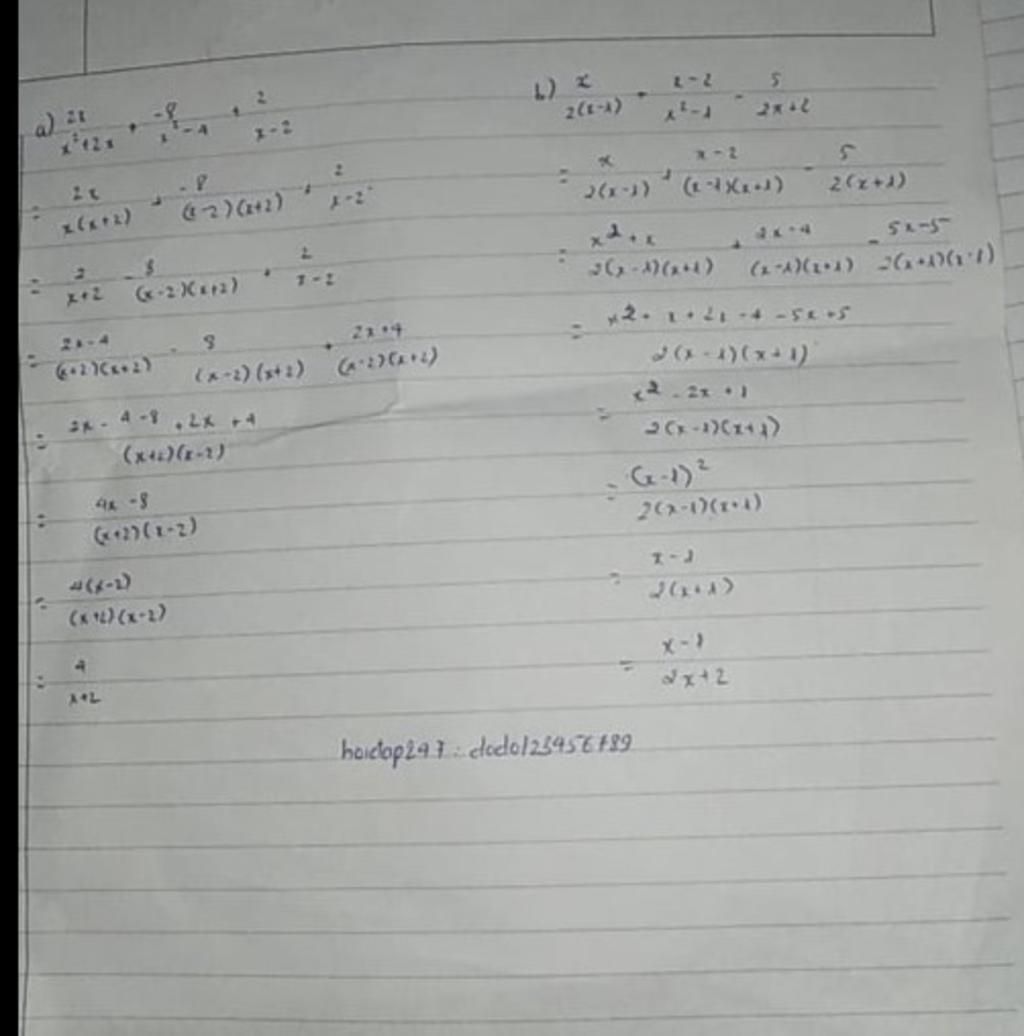 a) 2x/(x²+2x) + -8/(x²-4) + 2/(x-2)
= 2x/(x(x+2)) + -8/((x-2)(x+2)) + 2/(x-2)
= 2/(x+2) - 8/((x-2)(x+2)) + 2/(x-2)
= (2x-4)/((x+2)(x+2)) - 8/((x-2)(x+2)) + (2x+4)/((x-2)(x+2))
= (2x-4-8+2x+4)/((x+2)(x-2))
= (4x-8)/((x+2)(x-2))
= 4(x-2)/((x+2)(x-2))
= 4/(x+2)
b) x/(2(x-1)) + (x-2)/(x²-1) - 5/(2x+2)
= x/(2(x-1)) + (x-2)/((x-1)(x+1)) - 5/(2(x+1))
= (x²+x)/(2(x-1)(x+1)) + (2x-4)/((x-1)(x+1)) - (5x-5)/(2(x+1)(x-1))
= (x²+x+2x-4-5x+5)/(2(x-1)(x+1))
= (x²-2x+1)/(2(x-1)(x+1))
= (x-1)²/(2(x-1)(x+1))
= (x-1)/(2(x+1))
= (x-1)/(2x+2)
hoidap247: dodo123456789